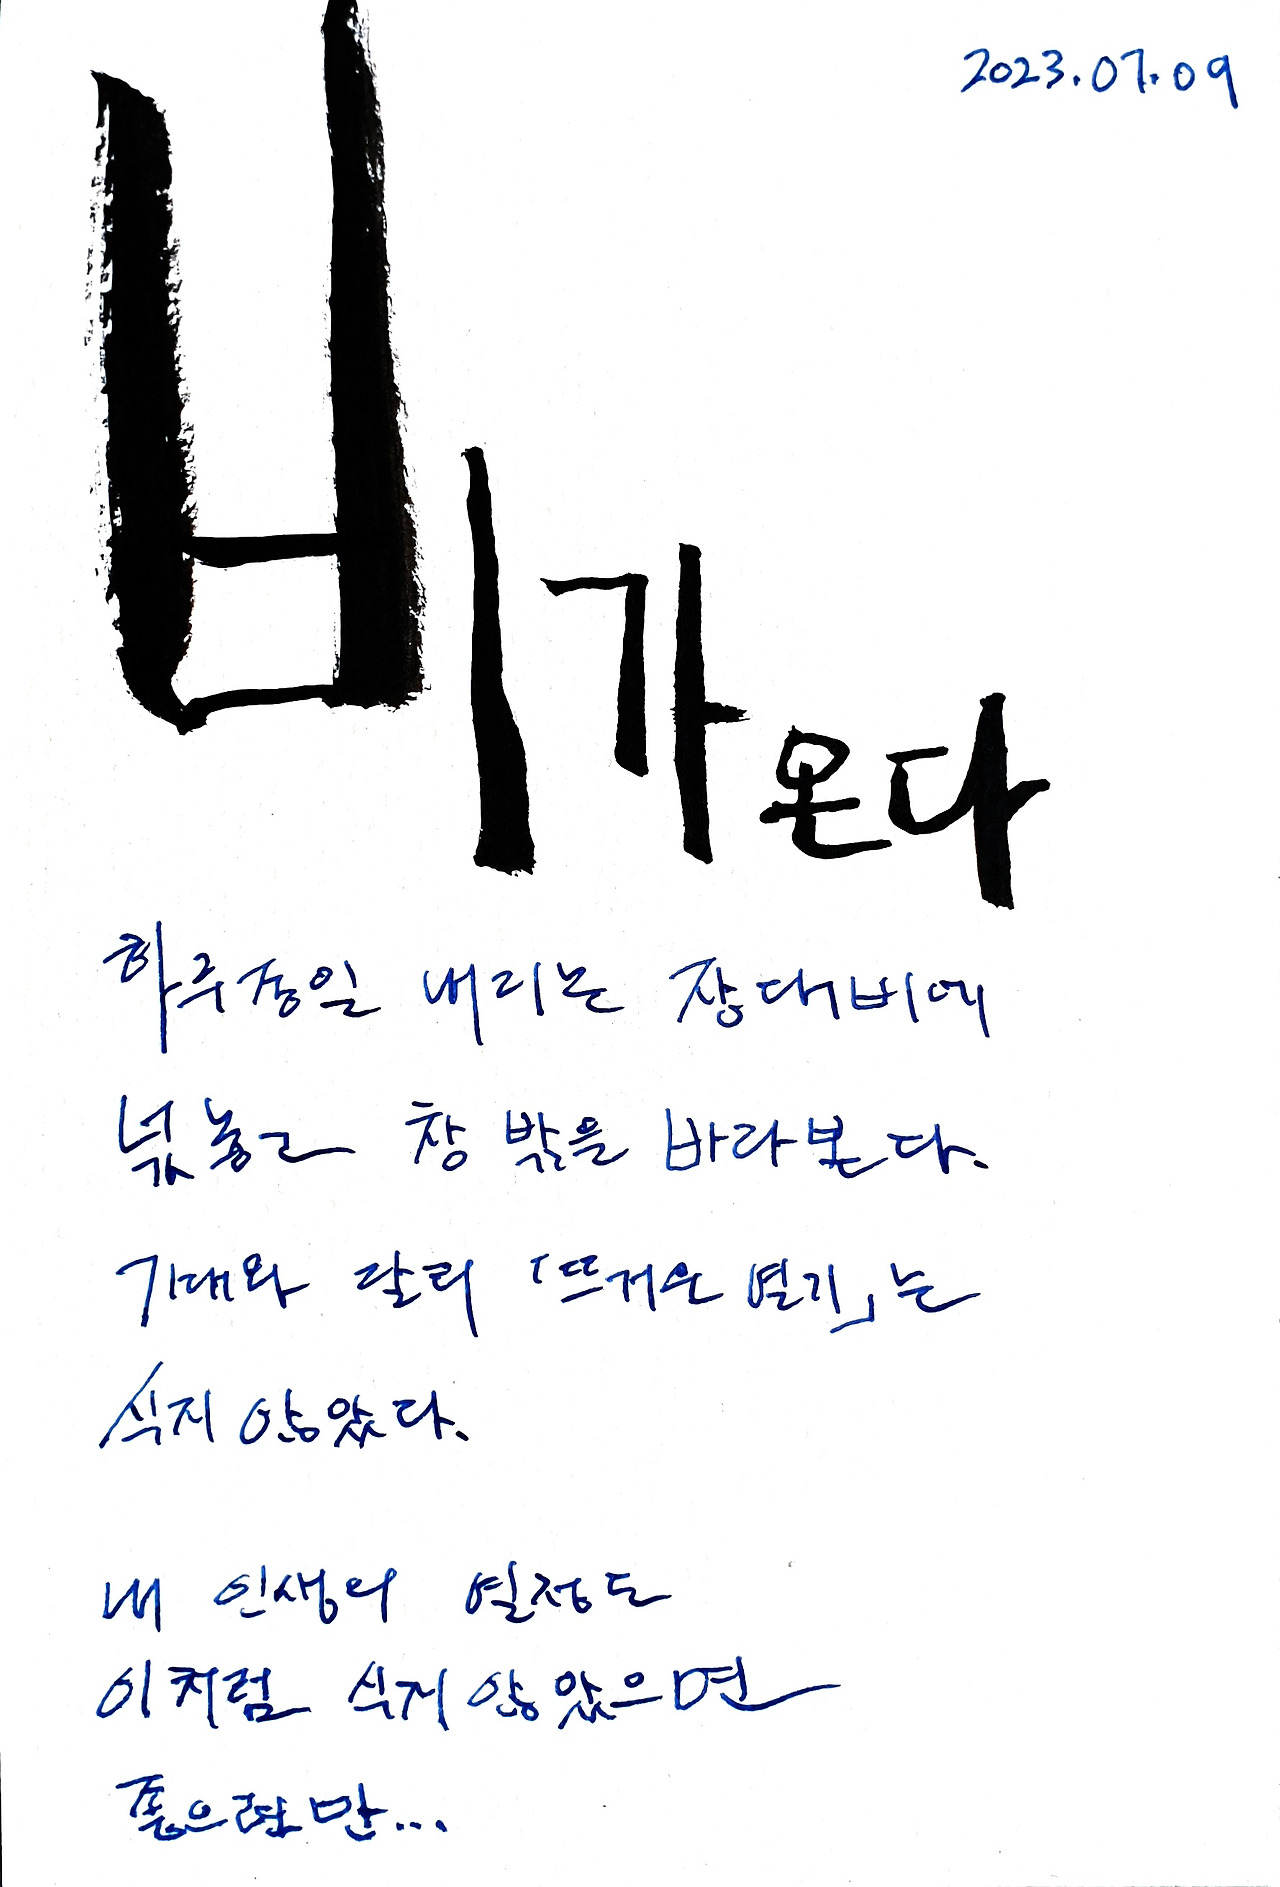 2023.07.09
비가 온다
하루종일 내리는 장대비에
넋놓고 창 밖을 바라본다.
기대와 달리 「뜨거운 열기」는
식지 않았다.
내 인생의 열정도
이처럼 식지 않았으면
좋으련만...